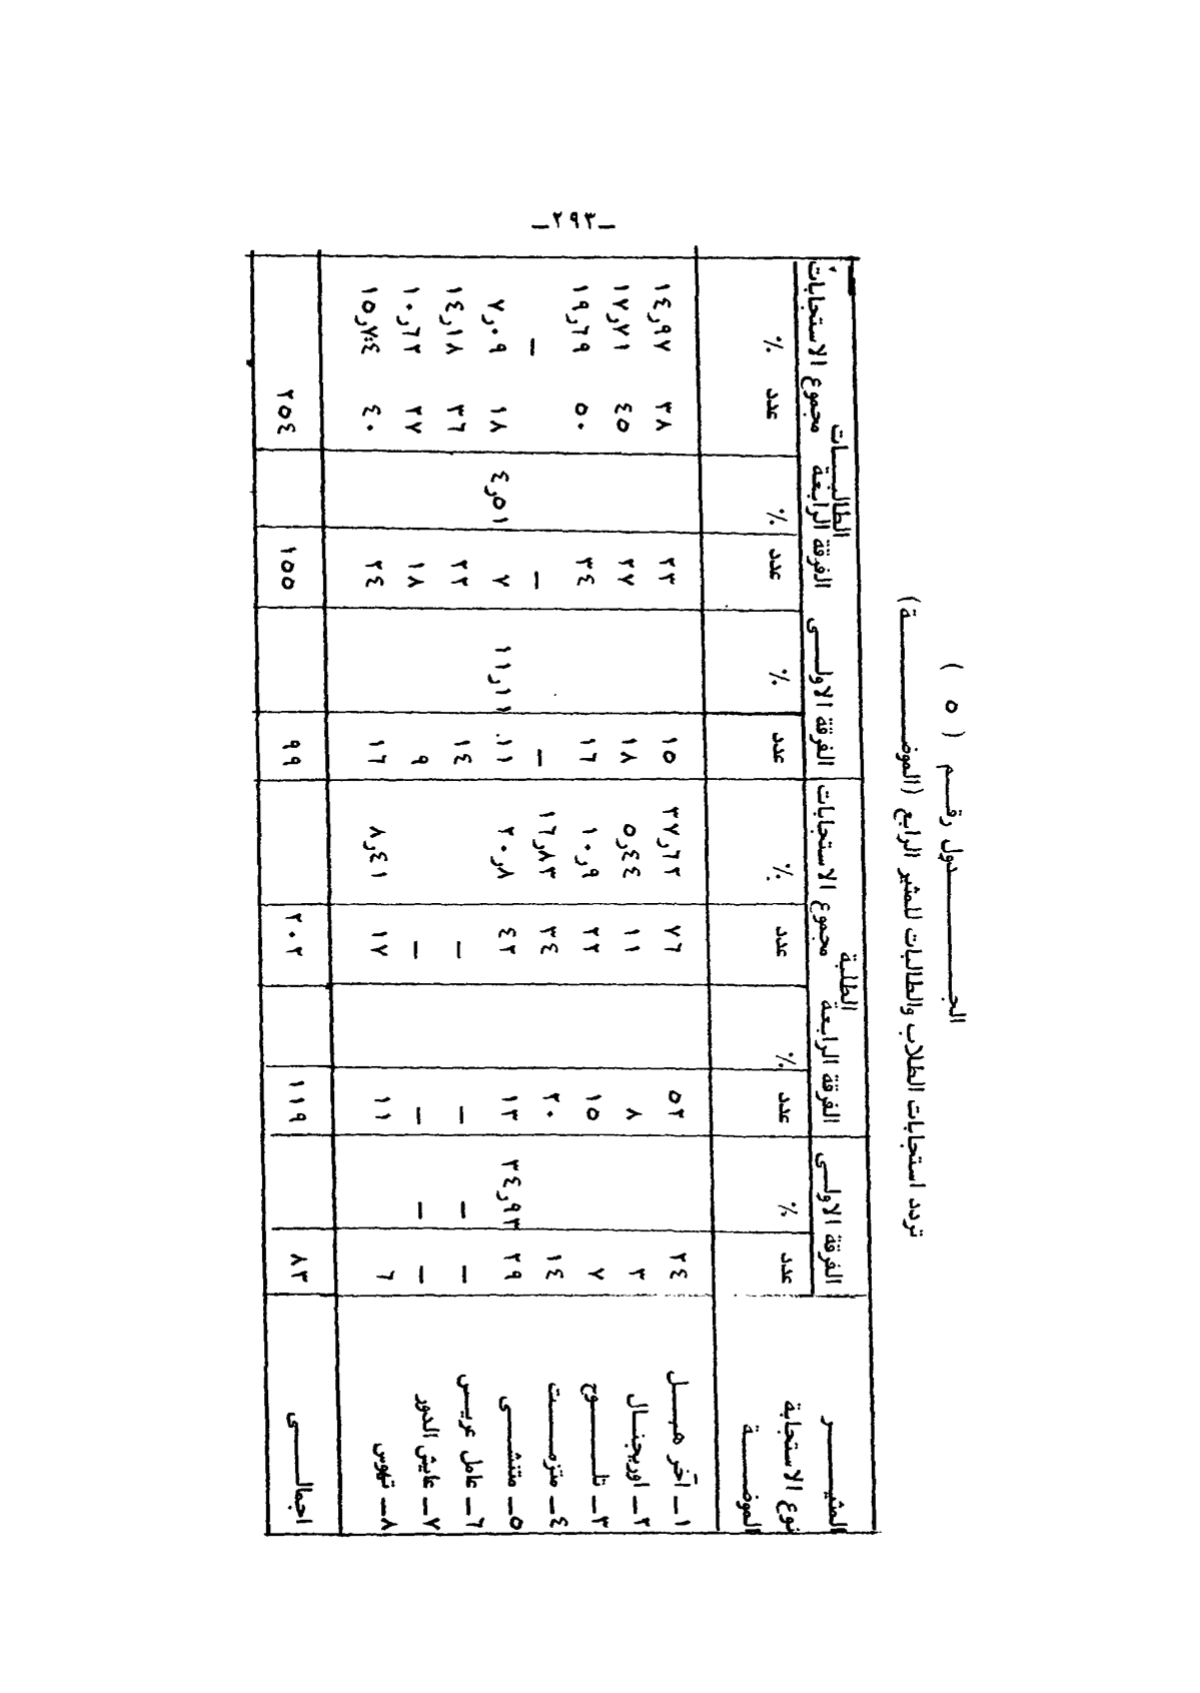 ـ٢٩٣ـ
الجـــــــــدول رقـم ( ٥ )
تردد استجابات الطلاب والطالبات للمثير الرابع (الموضــــــة)
المثيـــر الطلبة الطالبـــات
نوع الاستجابة الفرقة الاولـى الفرقة الرابعة مجموع الاستجابات الفرقة الاولـــى الفرقة الرابعة مجموع الاستجابات
الموضـــة عدد % عدد % عدد % عدد % عدد % عدد %
١ـ آخر هبـــل ٢٤ ٥٢ ٧٦ ٣٧٫٦٢ ١٥ ٢٣ ٣٨ ١٤٫٩٧
٢ـ اوريجنـــال ٣ ٨ ١١ ٥٫٤٤ ١٨ ٢٧ ٤٥ ١٧٫٧١
٣ـ تلـــوح ٧ ١٥ ٢٢ ١٠٫٩ ١٦ ٣٤ ٥٠ ١٩٫٦٩
٤ـ متزمـــت ١٤ ٢٠ ٣٤ ١٦٫٨٣ ـ ـ ـ
٥ـ متنشـــى ٢٩ ٣٤٫٩٣ ١٣ ٤٢ ٢٠٫٨ ١١ ١١٫١١ ٧ ٤٫٥١ ١٨ ٧٫٠٩
٦ـ عامل عريس ـ ـ ـ ـ ١٤ ٢٢ ٣٦ ١٤٫١٨
٧ـ عايش الدور ـ ـ ـ ـ ٩ ١٨ ٢٧ ١٠٫٦٢
٨ـ تهوس ٦ ١١ ١٧ ٨٫٤١ ١٦ ٢٤ ٤٠ ١٥٫٧٤
اجمالـــى ٨٣ ١١٩ ٢٠٢ ٩٩ ١٥٥ ٢٥٤